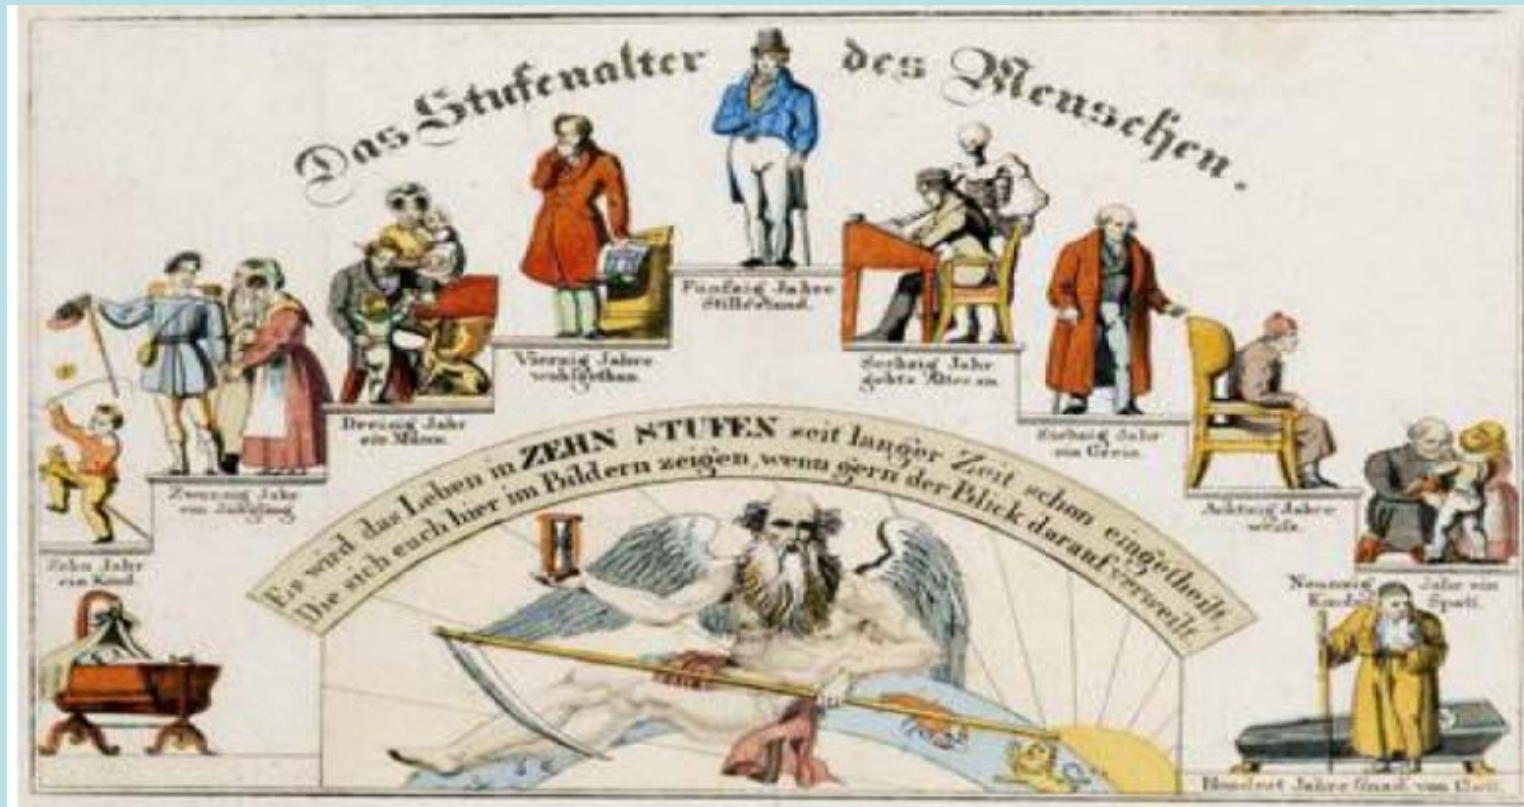 Das Stufenalter des Menschen.
Zehn Jahr
ein Kind.
Zwanzig Jahr
ein Jüngling
Dreizig Jahr
ein Mann.
Vierzig Jahre
wohlgethan.
Fünfzig Jahre
Stillestand.
Sechzig Jahr
gehts Alter an
Siebzig Jahr
ein Greis.
Achtzig Jahre
weiss.
Neunzig Jahr ein
Kinder Spott.
Hundert Jahre Gnad. von Gott.
Es wird das Leben in ZEHN STUFEN seit langer Zeit schon eingetheilt,
Die sich euch hier im Bildern zeigen, wenn gern der Blick darauf verweilt.